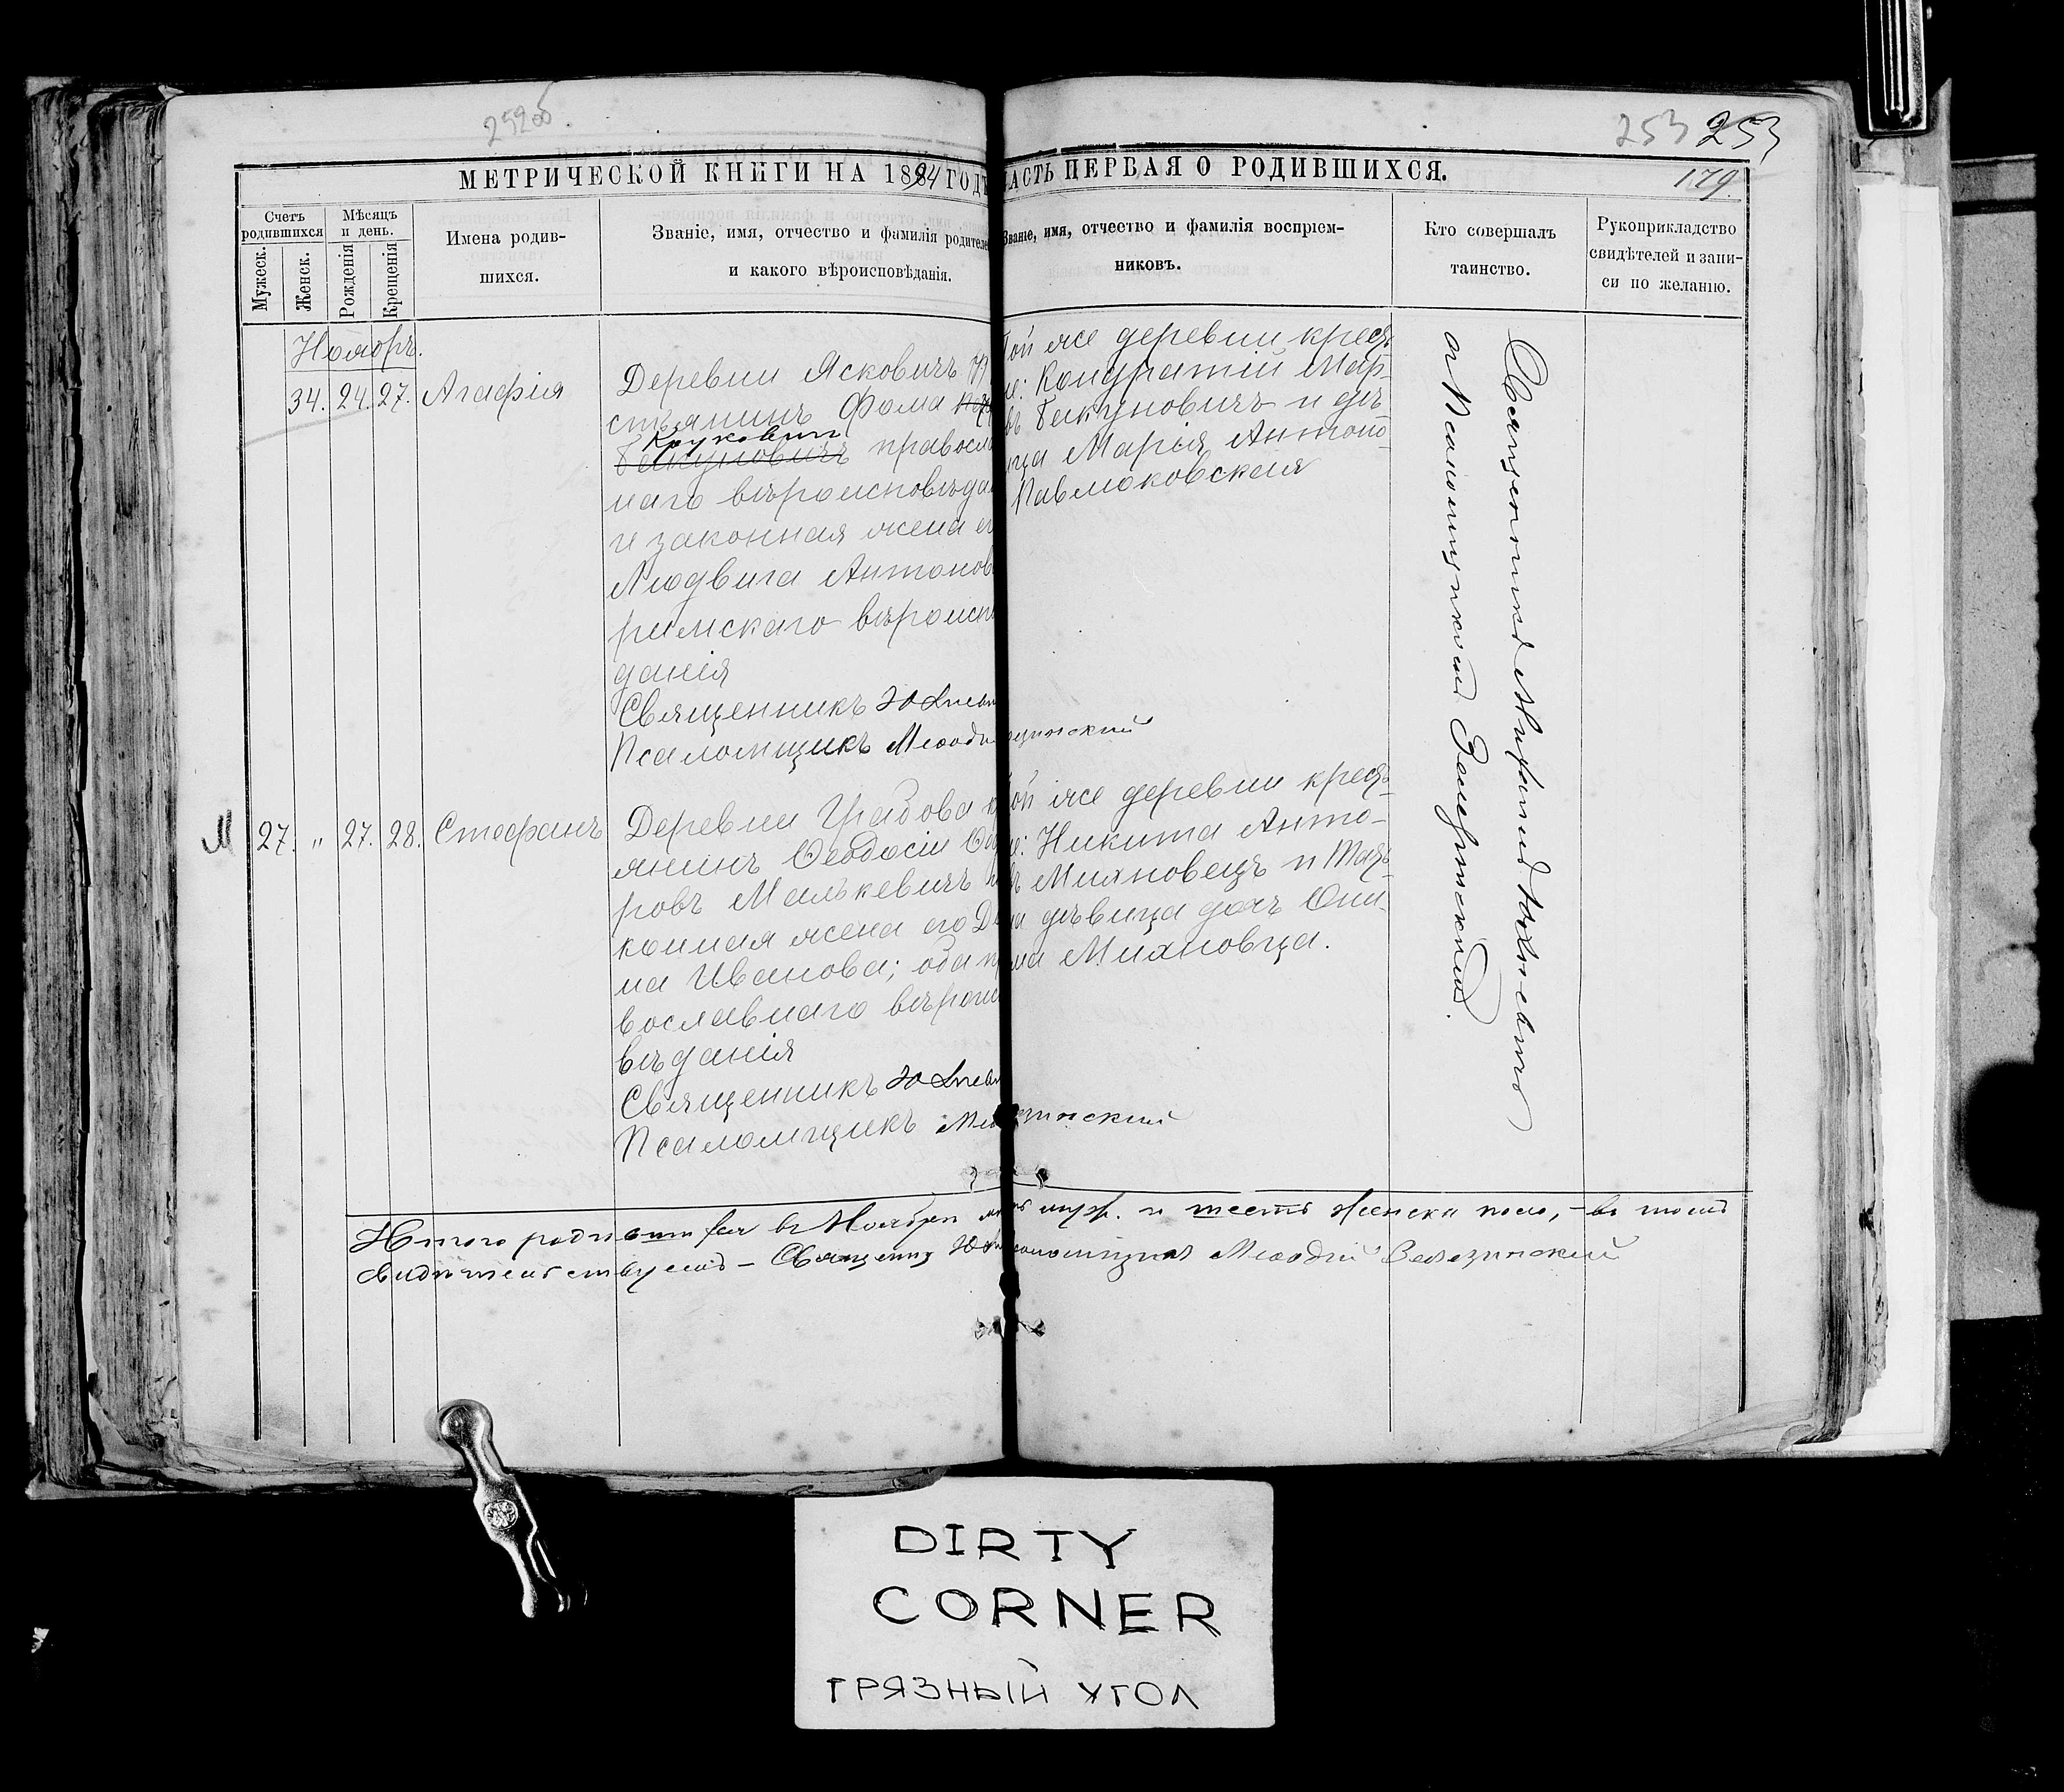 253 253
МЕТРИЧЕСКОЙ КНИГИ НА 1884 ГОДЪ
ЧАСТЬ ПЕРВАЯ О РОДИВШИХСЯ.
179.
Счетъ родившихся
Мужеск.
Женск.
Мѣсяцъ и день.
Рожденія
Крещенія
Имена родив-
шихся.
Званіе, имя, отчество и фамилія родителе
и какого вѣроисповѣданія.
Званіе, имя, отчество и фамилія воспріем-
никовъ.
Кто совершалъ
таинство.
Рукоприкладство
свидѣтелей и запи-
си по желанію.
Ноябрь.
34. 24. 27. Агафія
Деревни Ясковичъ
стьянинъ Фома
Круковичъ
Бакуновичъ правосла
наго вѣроисповѣда
и законная жена ег
Людвига Антонов
римскаго вѣроисп
данія
Священникъ
Псаломщикъ Меѳоди
Той же деревни крестья
не: Кондратій Мар-
Бакуновичъ и дѣ-
ица Марія Антоно
Павлюковская
М 27. " 27. 28. Стефанъ
Деревни Грабова к
янинъ Ѳеодосій
ровъ Малькевичъ и
конная жена его
на Иванова; оба п
вославнаго вѣроис
вѣданія
Священникъ
Псаломщикъ
той же деревни крестья-
не: Никита Анто-
Михновецъ и
дѣвица дочь
Михновца.
Священникъ
и Псаломщикъ
Итого родившихся въ Ноябрѣ муж. и шесть женска пола, – въ томъ
свидѣтельствуемъ – Священникъ
Псаломщикъ Меѳодій
DIRTY
CORNER
ГРЯЗНЫЙ УГОЛ